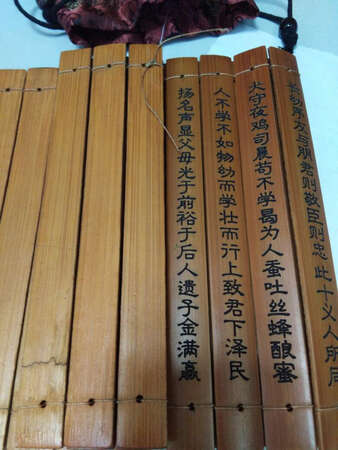 长幼序友与朋君则敬臣则忠此十义人所同
犬守夜鸡司晨苟不学曷为人蚕吐丝蜂酿蜜
人不学不如物幼而学壮而行上致君下泽民
扬名声显父母光于前裕于后人遗子金满赢